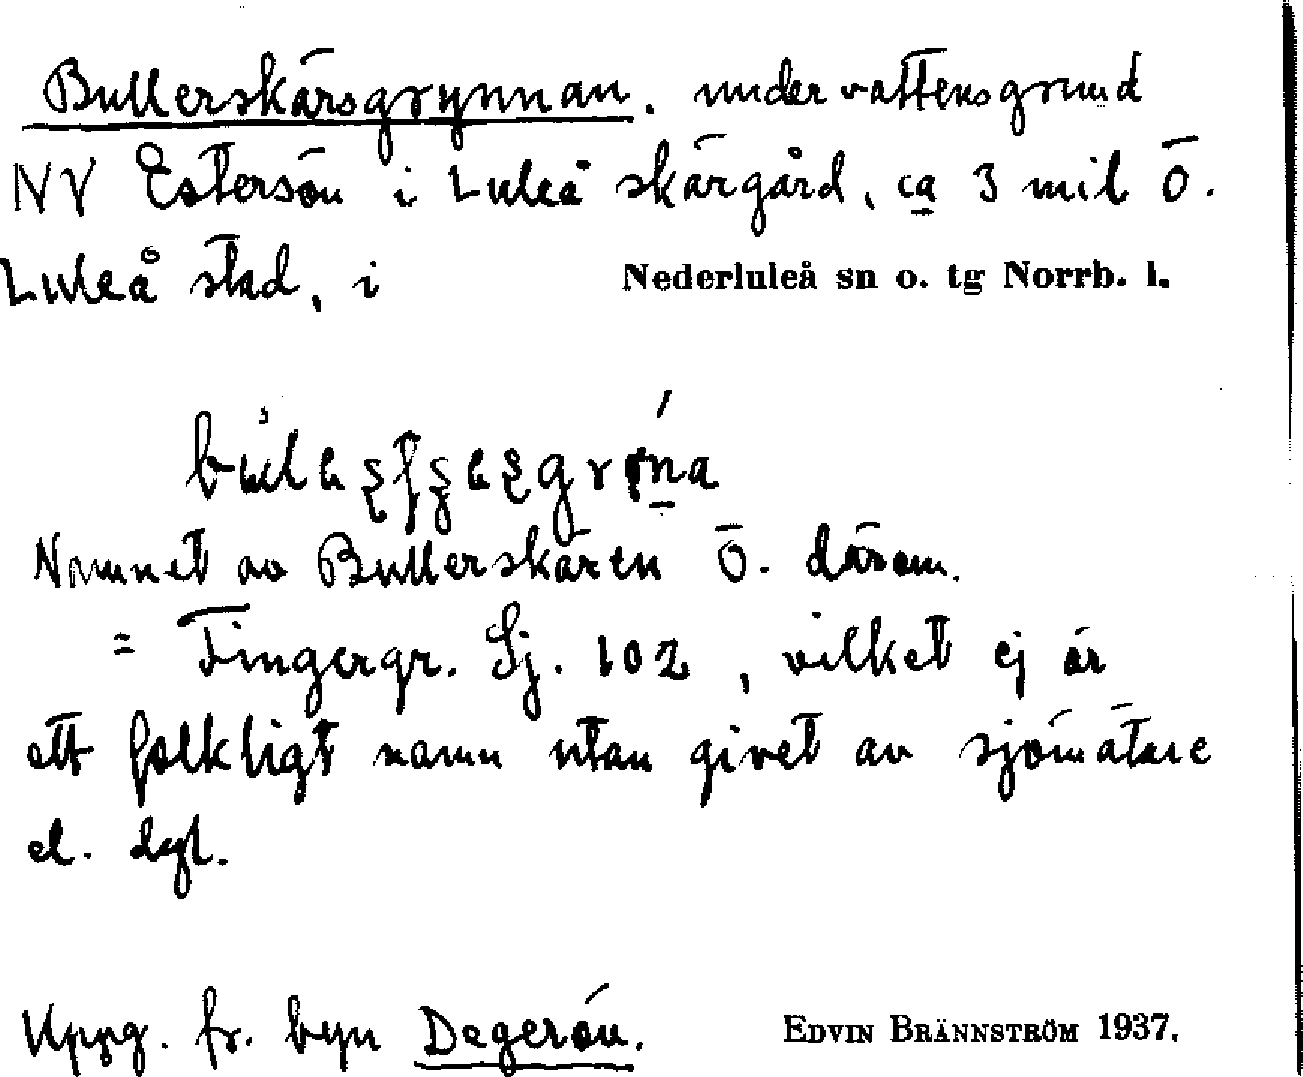 Bullerskärsgrynnan. undervattensgrund
NV Estersön i Luleå skärgård, ca 3 mil Ö.
Luleå stad, i Nederluleå sn o. tg Norrb. l.
Namnet av Bullerskären Ö. därom.
= Fingergr. Sj. 102, vilket ej är
ett folkligt namn utan givet av sjömätare
el. dyl.
Uppg. fr. byn Degerön. EDVIN BRÄNNSTRÖM 1937.